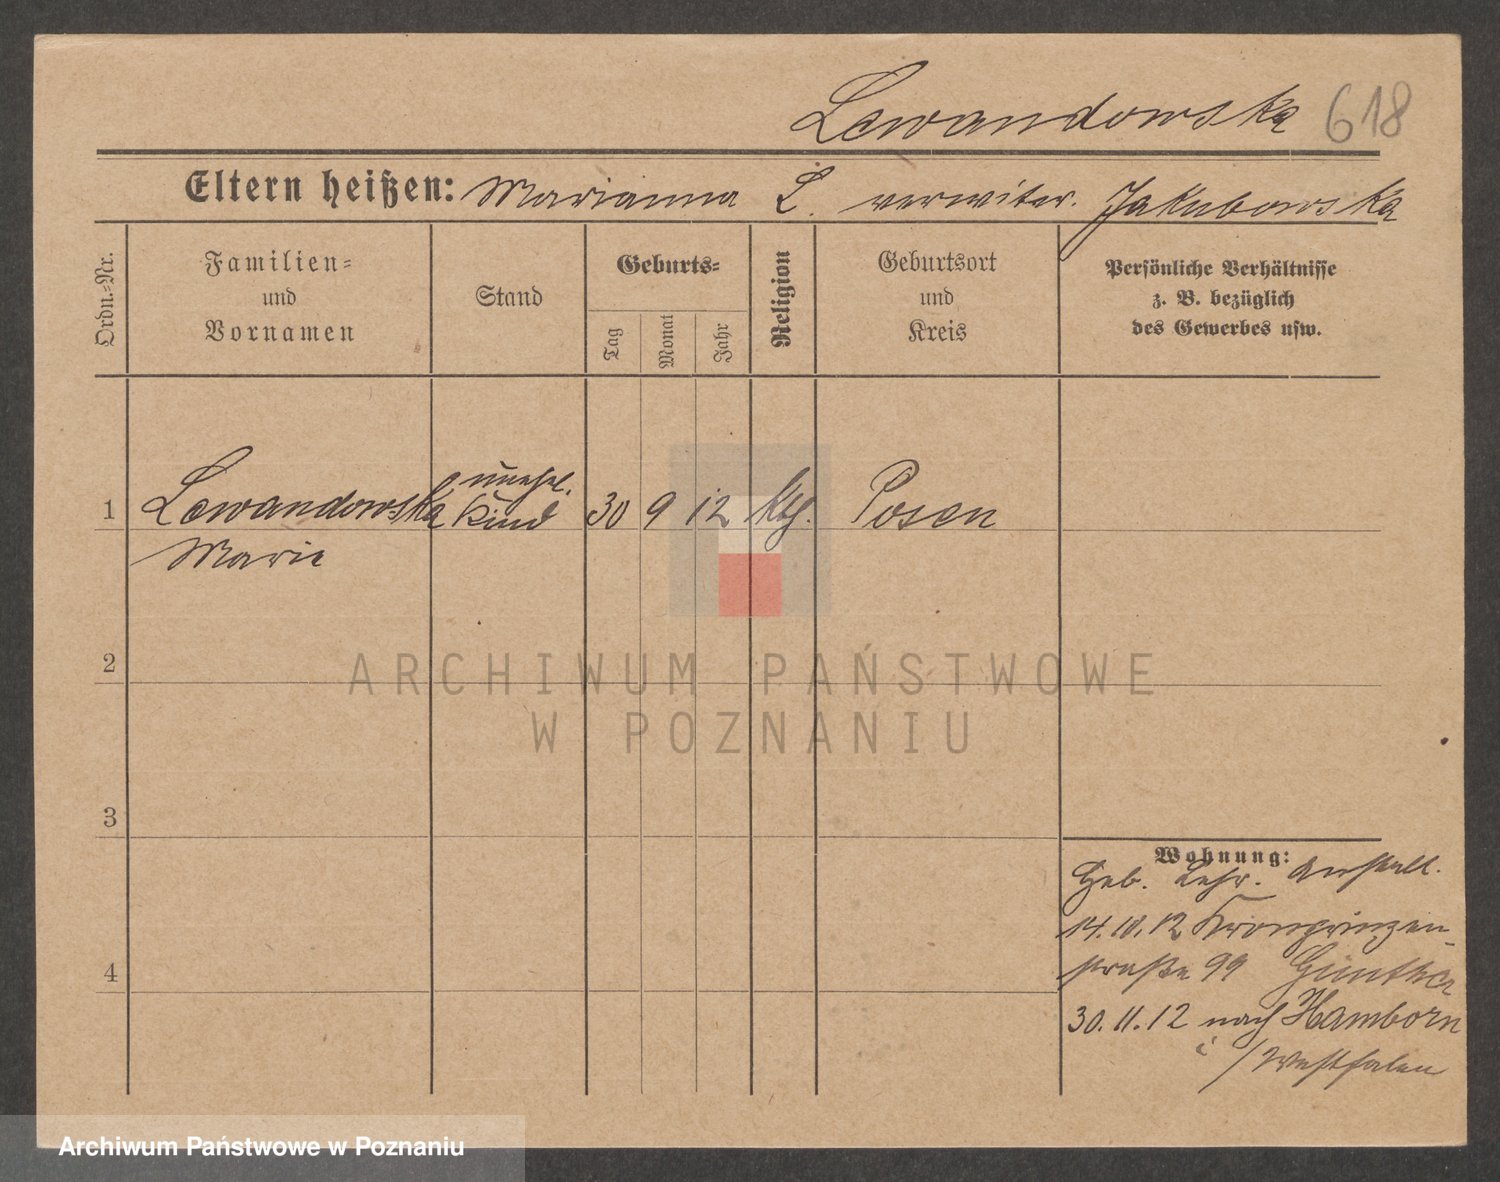 Lewandowska 618
Eltern heißen: Marianna L. verwitw. Jakubowska
Ordn.-Nr.
Familien-
und
Vornamen
Stand
Geburts-
Tag
Monat
Jahr
Religion
Geburtsort
und
Kreis
Persönliche Verhältnisse
z. B. bezüglich
des Gewerbes usw.
unehel.
1 Lewandowska Kind 30 9 12 kth. Posen
Marie
2
ARCHIWUM PAŃSTWOWE
W POZNANIU
3
Wohnung:
Geb. Lehr. Anstalt.
14.10.12 Kronprinzen-
straße 99 Günther
4
30.11.12 nach Hamborn
i/Westfalen
Archiwum Państwowe w Poznaniu